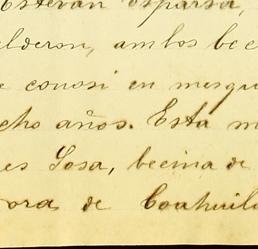 Estevan Esparza,
alderon, ambos bec
e conosi en mesqu
cho años. Esta m
es Sosa, becina de
ora de Coahuil